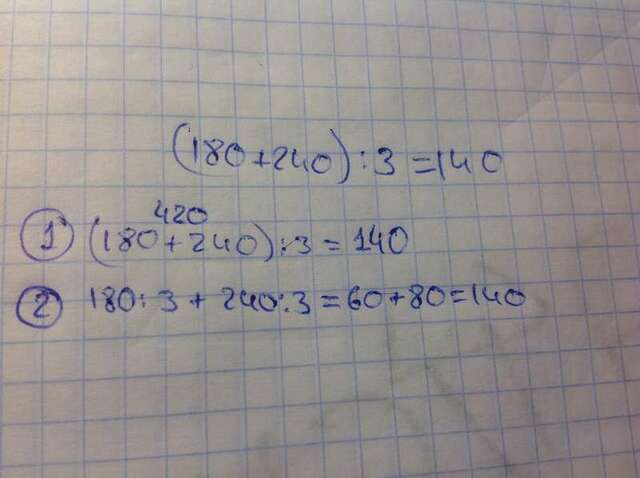 (180+240):3=140
420
① (180+240):3=140
② 180:3+240:3=60+80=140